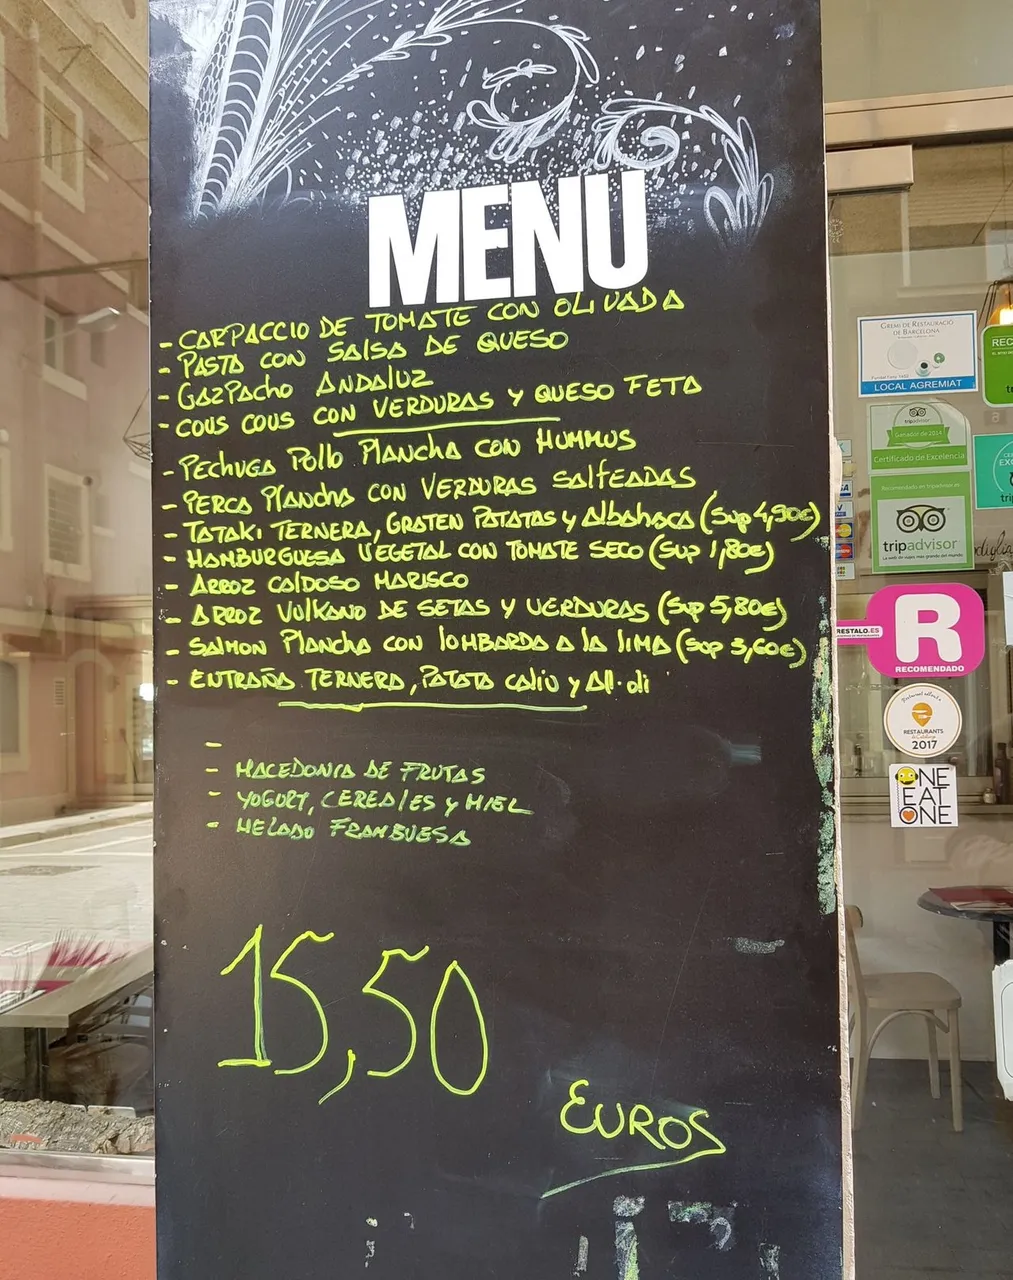 MENU
- CARPACCIO DE TOMATE CON OLIVADA
- PASTA CON SALSA DE QUESO
- GAZPACHO ANDALUZ
- COUS COUS CON VERDURAS Y QUESO FETA
- PECHUGA POLLO PLANCHA CON HUMMUS
- PERCA PLANCHA CON VERDURAS SALTEADAS
- TATAKI TERNERA, GRATEN PATATAS y AlbAHACA (Sup 4,90€)
- HAMBURGUESA VEGETAL CON TOMATE SECO (Sup 1,80€)
- ARROZ CALDOSO MARISCO
- ARROZ VULKANO DE SETAS Y VERDURAS (Sup 5,80€)
- SALMON PLANCHA CON LOMBARDA A LA LIMA (Sup 3,60€)
- ENTRAÑA TERNERA, PATATA CALIU y All·oli
-
- MACEDONIA DE FRUTAS
- YOGURT, CEREALES y MIEL
- HELADO FRAMBUESA
15,50
EUROS
GREMI DE RESTAURACIÓ
DE BARCELONA
LOCAL AGREMIAT
REC
tripadvisor
Ganador de 2014
Certificado de Excelencia
Recomendado en tripadvisor
tripadvisor
La web de viajes más grande del mundo
RESTALO.ES
R
RECOMENDADO
RESTAURANTS
2017
ONE
EAT
ONE